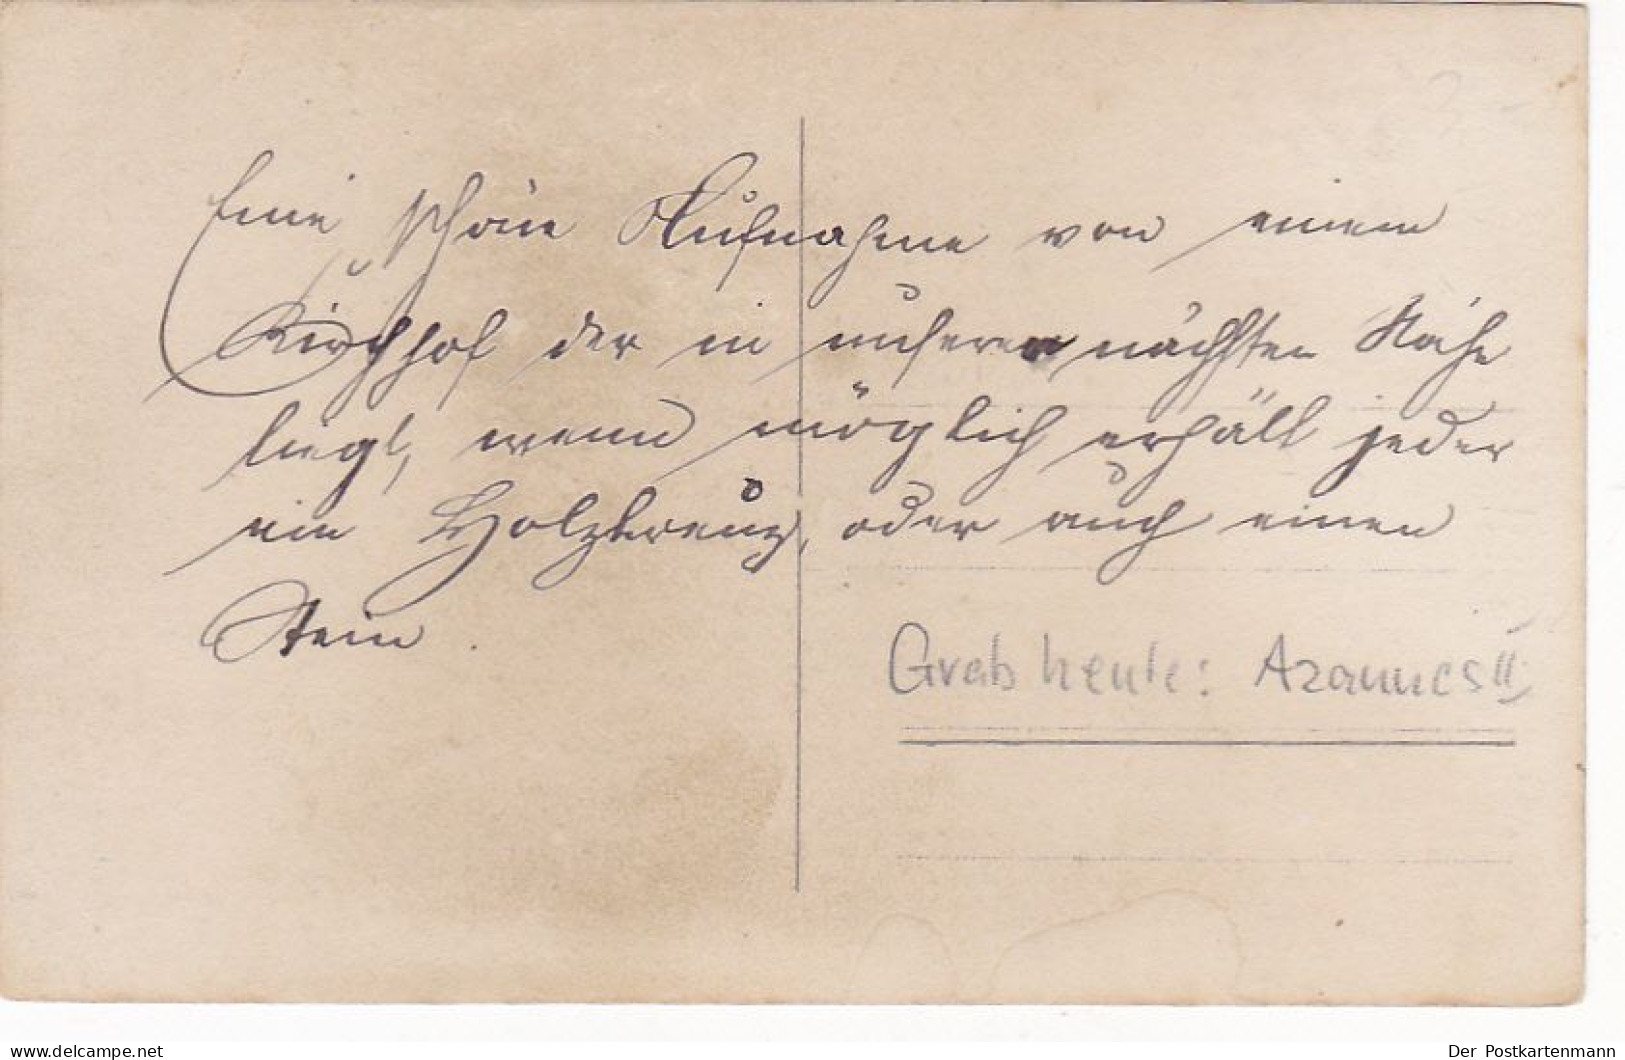 Eine schöne Aufnahme von einem
Kirchhof der in unserer nächsten Nähe
liegt, wenn möglich erhält jeder
ein Holzkreuz, oder auch einen
Stein.
Grab heute: Azannes II
delcampe.net
Der Postkartenmann